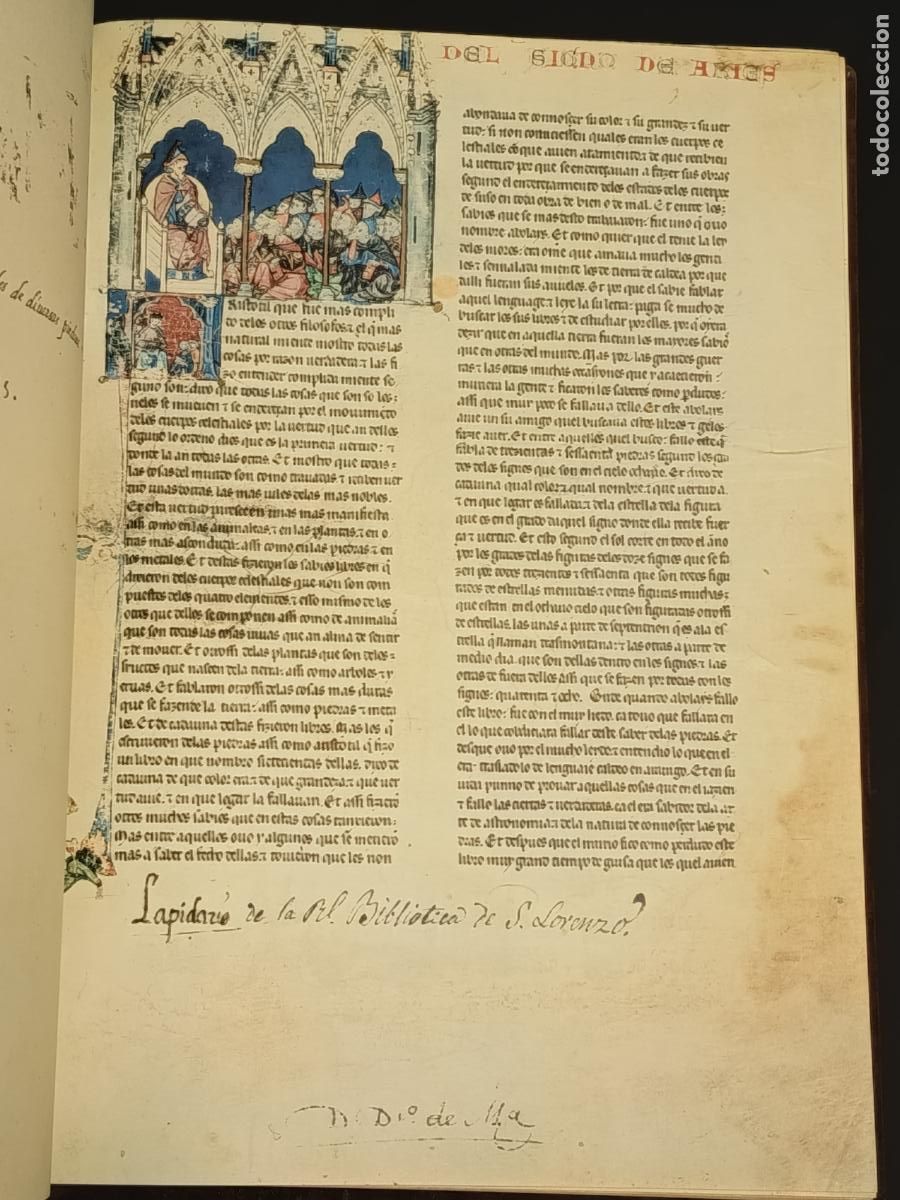 DEL SIGNO DE ARIES
ristotil que fue mas compli
do delos otros filosofos τ el q̃ mas
natural miente mostro todas las
cosas por razon uerdadera τ las fi
zo entender complida miente se
gund son: dixo que todas las cosas que son so los
cielos se mueuen τ se enderesçan por el mouimiento
delos cuerpos celestiales por la uertud que an dellos
segund lo ordeno dios que es la primera uertud: τ
donde la an todas las otras. Et mostro que todas
las cosas del mundo son como trauadas τ reciben uer
tud unas dotras. las mas uiles delas mas nobles.
Et esta uertud paresce en unas mas manifiesta.
assi como en las animalias τ en las plantas. τ en o
tras mas asconduda: assi como en las piedras τ en
los metales. Et destas fizieron los sabios libros en q̃
dixieron delos cuerpos celestiales que non son com
puestos delos quatro elementos. τ esso mismo de los
otros que dellos se componen assi como de animalias
que son todas las cosas uiuas que an alma de sentir
τ de mouer. Et otrossi delas plantas que son delos
fructos que nascen dela tierra: assi como arboles τ y
eruas. Et fablaron otrossi delas cosas mas duras
que se fazen de la tierra: assi como piedras τ meta
les. Et de cadauna destas fizieron libros. Mas los q̃
escriuieron delas piedras assi como aristotil q̃ fizo
un libro en que nombro sietecientas dellas. dixo de
cadauna de que color era: τ de que grandeza: τ que uer
tud auie. τ en que logar la fallauan. Et assi fizierõ
otros muchos sabios que en estas cosas tanxieron:
Mas entre aquellos ouo y algunos que se metierõ
mas a saber el fecho dellas: τ touieron que les non
abondaua de connosçer su color τ su grandez τ su uer
tud: si non connosciessen quales eran los cuerpos ce
lestiales cõ que auien atamiento: τ de que recibien
la uertud por que se enderesçauan a fazer sus obras
segund el enderesçamiento delos estados delos cuerpos
de suso en toda obra de bien o de mal. Et entre los
sabios que se mas desto trabaiaron: fue uno q̃ ouo
nombre abolays. Et como quier que el tenie la ley
delos moros: era ome que amaua mucho los genti
les τ sennalada miente los de tierra de caldea por que
dalli fueran sus auuelos. Et por que el sabie fablar
aquel lenguage: τ leye la su letra: pagaua se mucho de
buscar los sus libros τ de estudiar por ellos. por q̃ oyera
dezir que en aquella tierra fueran los mayores sabios
que en otras del mundo. Mas por las grandes guer
ras τ las otras muchas ocasiones que y acaecieron:
muriera la gente τ ficaron los saberes como perdudos:
assi que muy poco se fallaua dello. Et este abolays
auie un su amigo quel buscaua estos libros τ gelos
fazie auer. Et entre aquellos quel busco: fallo este q̃
fabla de trezientas τ sessaenta piedras segund los gra
dos delos signos que son en el cielo ochauo. Et dixo de
cadauna qual color τ qual nombre τ que uertud a.
τ en que logar es fallada: τ dela estrella dela figura
que es en el grado daquel signo donde ella recibe fuer
ça τ uertud. Et esto segund el sol corre en todo el anno
por los grados delas figuras delos doze signos que se fa
zen por todos trezientos τ sessaenta que son todos figu
rados de estrellas menudas: τ otras figuras muchas
que estan en el ochauo cielo que son figuradas otrossi
de estrellas. las unas a parte de septentrion q̃ es ala es
trella q̃ llaman trasmontana: τ las otras a parte de
medio dia. que son dellas dentro en los signos: τ las
otras de fuera dellos assi que se fazen por todas con los
signos: quarenta τ ocho. Onde quando abolays fallo
este libro: fue con el muy ledo. ca touo que fallara en
el lo que cobdiciara fallar deste saber delas piedras. Et
desque ouo por el mucho leydo: τ entendio lo que en el
era: traslado lo de lenguaie caldeo en arauigo. Et en su
uida punno de prouar aquellas cosas que en el iazien
τ fallo las ciertas τ uerdaderas. ca el era sabidor dela ar
te de astronomia: τ dela natura de connosçer las pie
dras. Et despues que el murio fico como perdudo este
libro muy grand tiempo de guisa que los quel auien
Lapidario de la Rl. Biblioteca de S. Lorenzo.
D. Di.º de Mª
todocoleccion